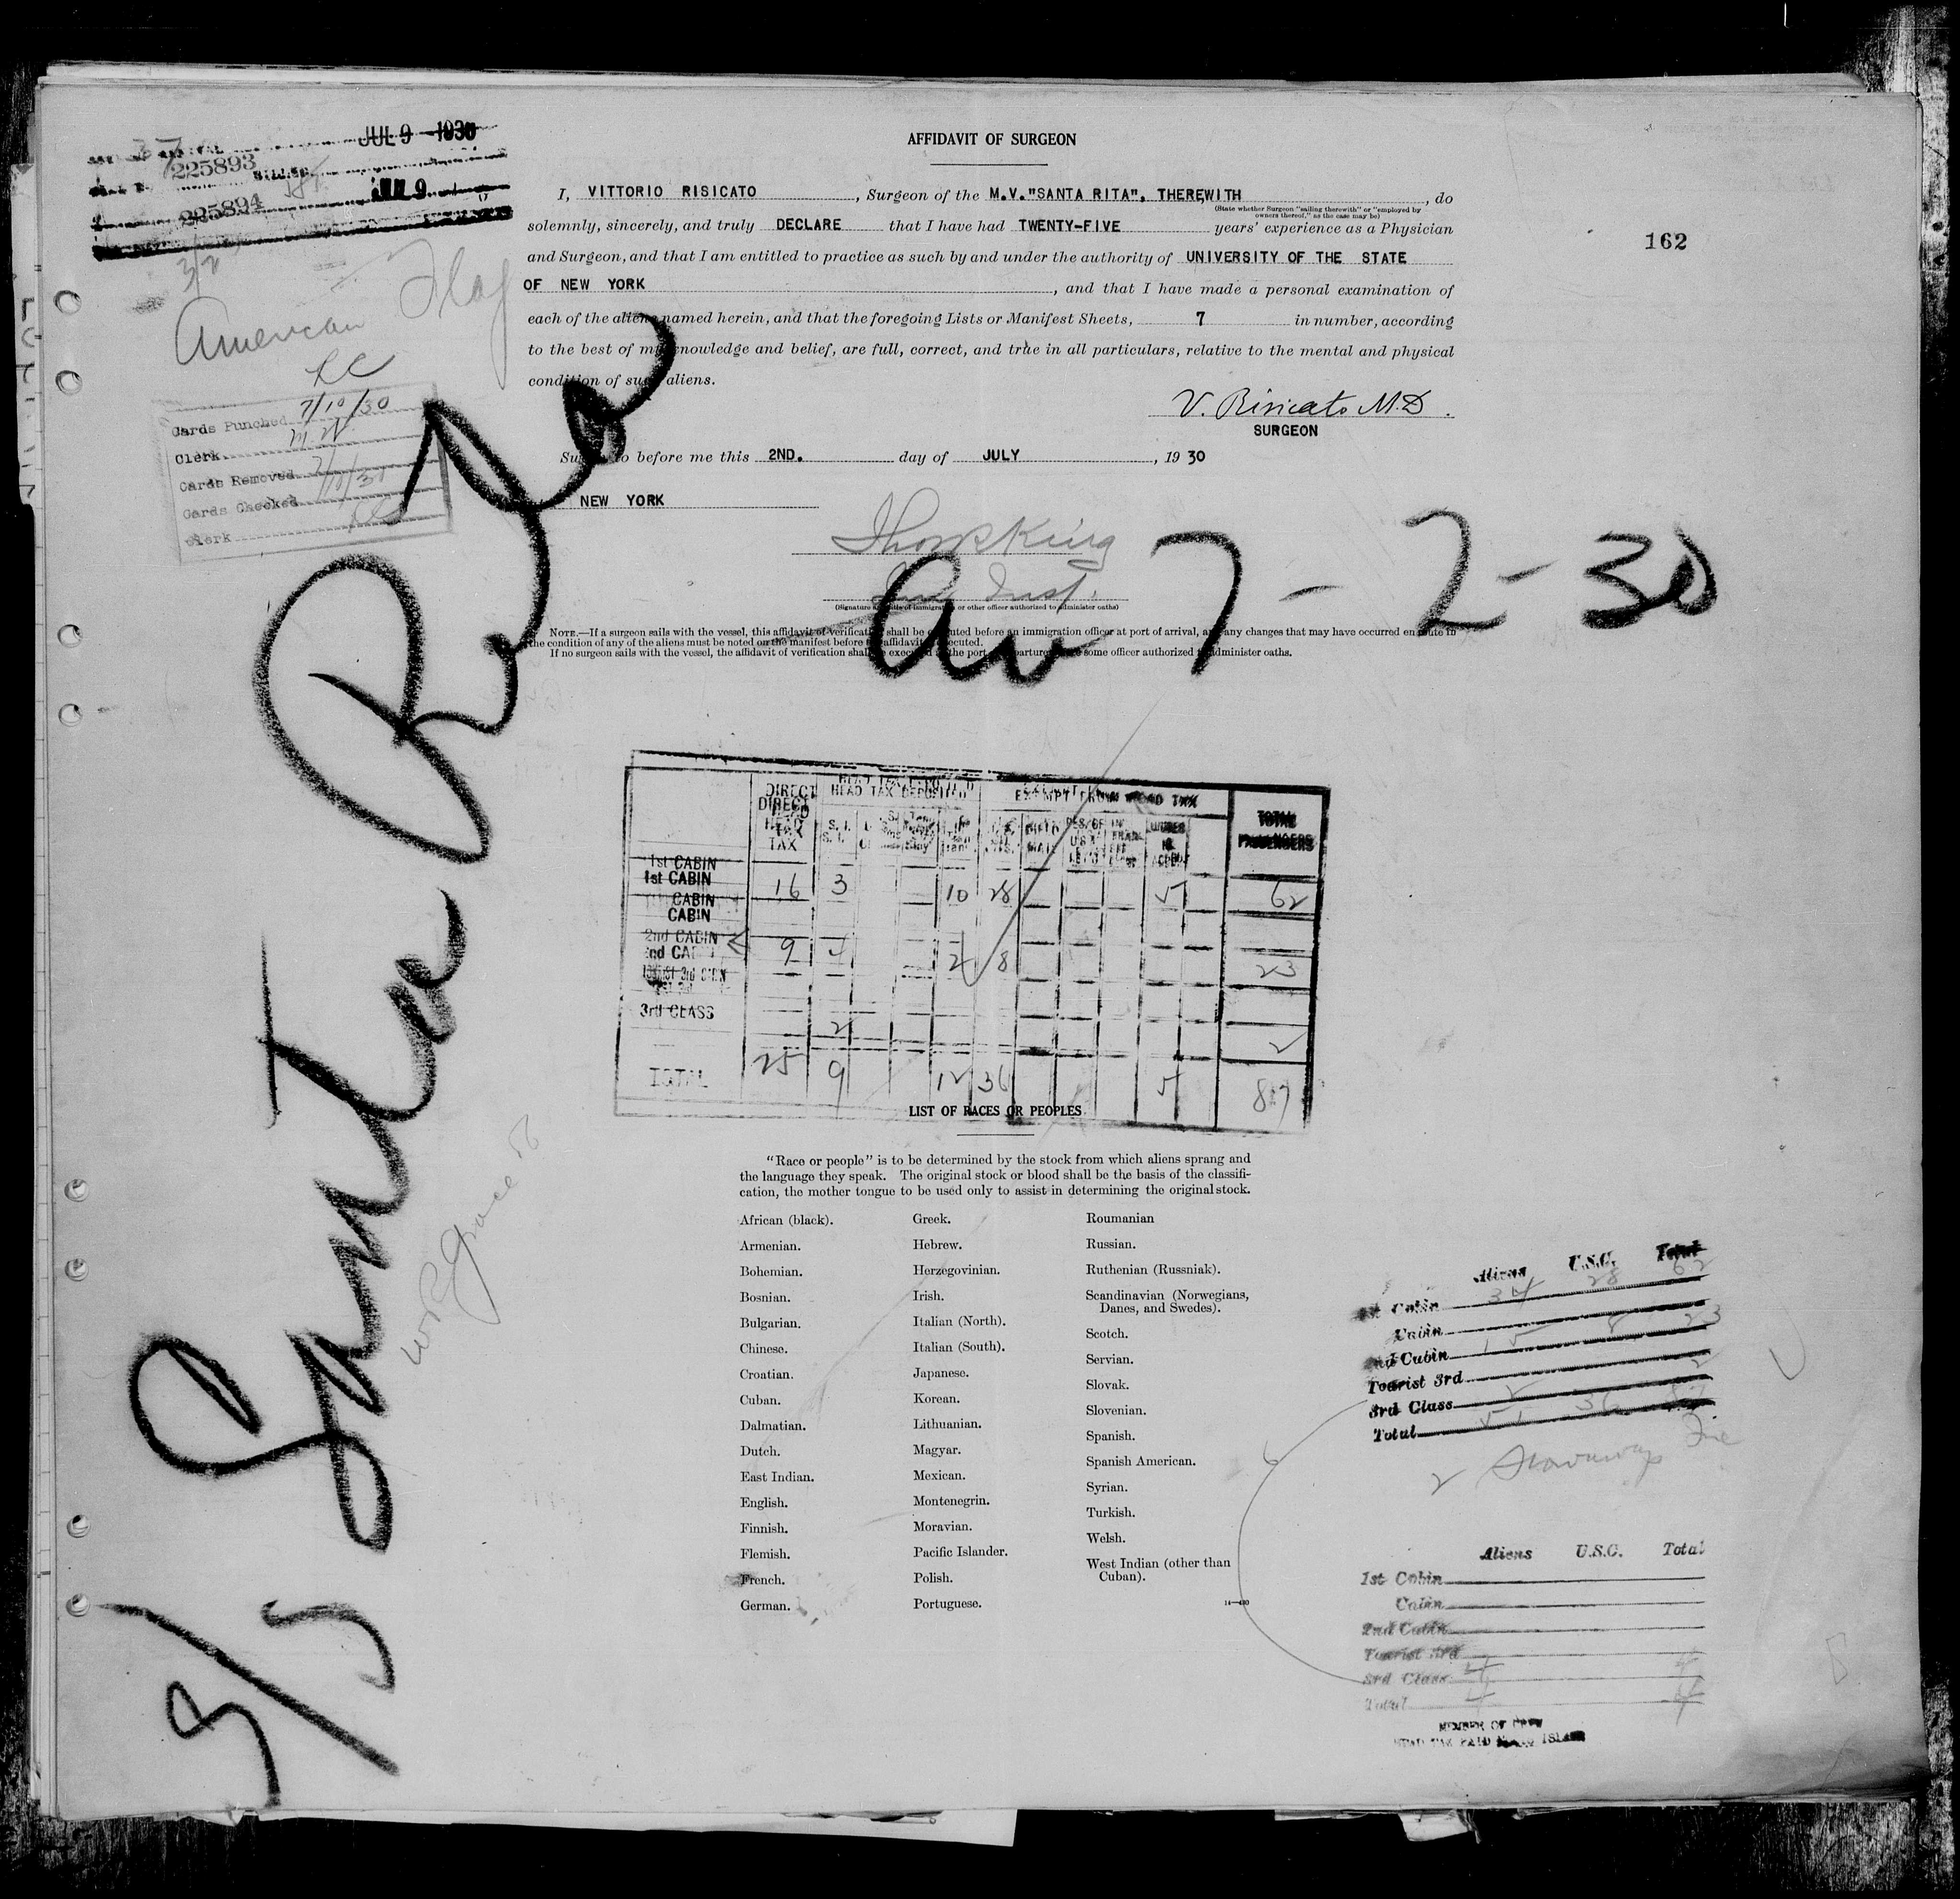 JUL 9 1930
225893
225894
JUL 9
3/2
American Flag
AFFIDAVIT OF SURGEON
I, VITTORIO RISICATO, Surgeon of the M.V."SANTA RITA", THEREWITH, do
(State whether Surgeon "sailing therewith" or "employed by
owners thereof," as the case may be)
solemnly, sincerely, and truly DECLARE that I have had TWENTY-FIVE years' experience as a Physician
and Surgeon, and that I am entitled to practice as such by and under the authority of UNIVERSITY OF THE STATE
OF NEW YORK, and that I have made a personal examination of
each of the aliens named herein, and that the foregoing Lists or Manifest Sheets, 7 in number, according
to the best of my knowledge and belief, are full, correct, and true in all particulars, relative to the mental and physical
condition of such aliens.
V. Risicato M.D.
SURGEON
162
Cards Punched 7/10/30
Clerk
Cards Removed
Cards Checked
Clerk
to before me this 2ND. day of JULY, 1930
NEW YORK
(Signature and title of immigration or other officer authorized to administer oaths)
Av 7-2-30
NOTE.—If a surgeon sails with the vessel, this affidavit of verification shall be executed before an immigration officer at port of arrival, and any changes that may have occurred en route in
the condition of any of the aliens must be noted on the manifest before the affidavit is executed.
If no surgeon sails with the vessel, the affidavit of verification shall be executed at the port of departure before some officer authorized to administer oaths.
S/S Santa Rita
W R Grace
DIRECT HEAD TAX
HEAD TAX DEPOSITED
EXEMPT FROM HEAD TAX
TOTAL PASSENGERS
1st CABIN 16 3 10 28 5 62
CABIN
2nd CABIN 9 4 2 8 23
3rd CLASS 2 2
TOTAL 25 9 12 36 5 87
LIST OF RACES OR PEOPLES
"Race or people" is to be determined by the stock from which aliens sprang and
the language they speak. The original stock or blood shall be the basis of the classifi-
cation, the mother tongue to be used only to assist in determining the original stock.
African (black).
Armenian.
Bohemian.
Bosnian.
Bulgarian.
Chinese.
Croatian.
Cuban.
Dalmatian.
Dutch.
East Indian.
English.
Finnish.
Flemish.
French.
German.
Greek.
Hebrew.
Herzegovinian.
Irish.
Italian (North).
Italian (South).
Japanese.
Korean.
Lithuanian.
Magyar.
Mexican.
Montenegrin.
Moravian.
Pacific Islander.
Polish.
Portuguese.
Roumanian
Russian.
Ruthenian (Russniak).
Scandinavian (Norwegians,
Danes, and Swedes).
Scotch.
Servian.
Slovak.
Slovenian.
Spanish.
Spanish American.
Syrian.
Turkish.
Welsh.
West Indian (other than
Cuban).
14—430
Aliens U.S.C. Total
1st Cabin 34 28 62
Cabin
2nd Cabin 15 8 23
Tourist 3rd
3rd Class 2 2
Total 51 36 87
2 Stowaways
Aliens U.S.C. Total
1st Cabin
Cabin
2nd Cabin
Tourist 3rd
3rd Class 4 4
Total 4 4
MEMBER OF CREW
HEAD TAX PAID ISLAND